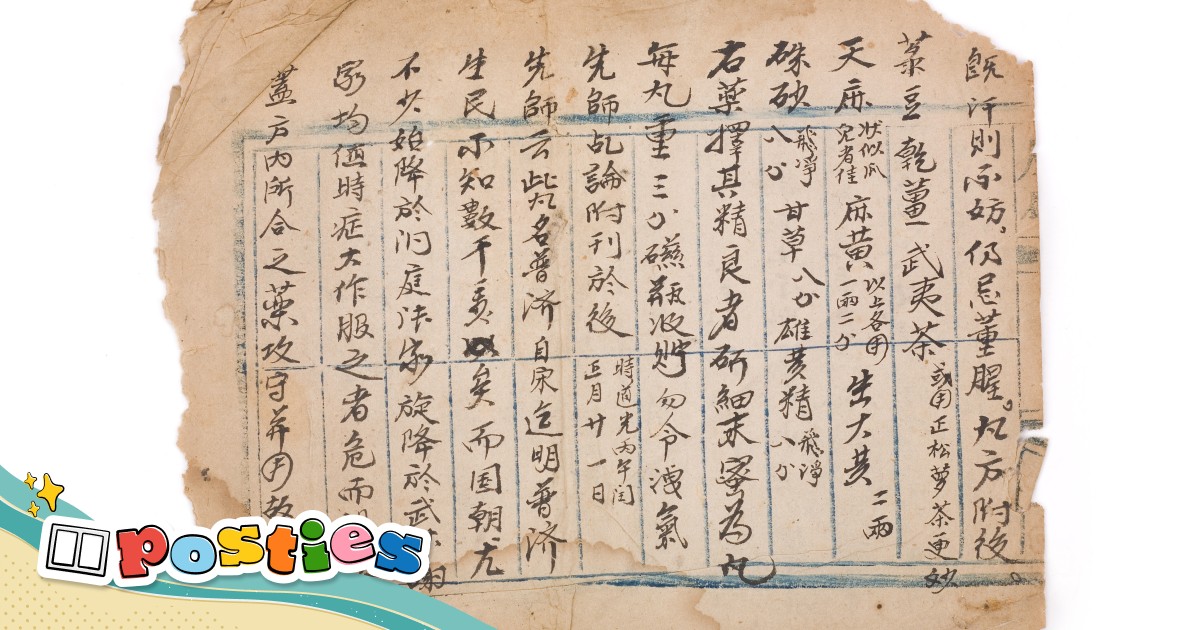 既汗則不妨，仍忌葷腥。丸方附後
菉豆 乾薑 武夷茶 或用正松蘿茶更妙
天麻 狀似瓜兒者佳 麻黃 以上各用一兩二分 生大黃 二兩
硃砂 飛淨八分 甘草 八分 雄黃精 飛淨八分
右藥擇其精良者研細末密為丸
每丸重三分磁瓶收貯勿令洩氣
先師乩論附刊於後 時道光丙午閏正月廿一日
先師云此丸名普济自宋迄明普济
生民不知數千矣而国朝尤
不少始降於洞庭家旋降於武
家均值時症大作服之者危而
蓋戶內所合之藥攻守并用
posties